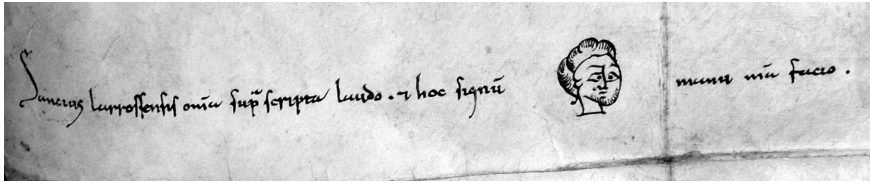 Sancius larrossensis om̅ia sup̅ scripta laudo. ⁊ hoc signu̅ manu m̅a facio.